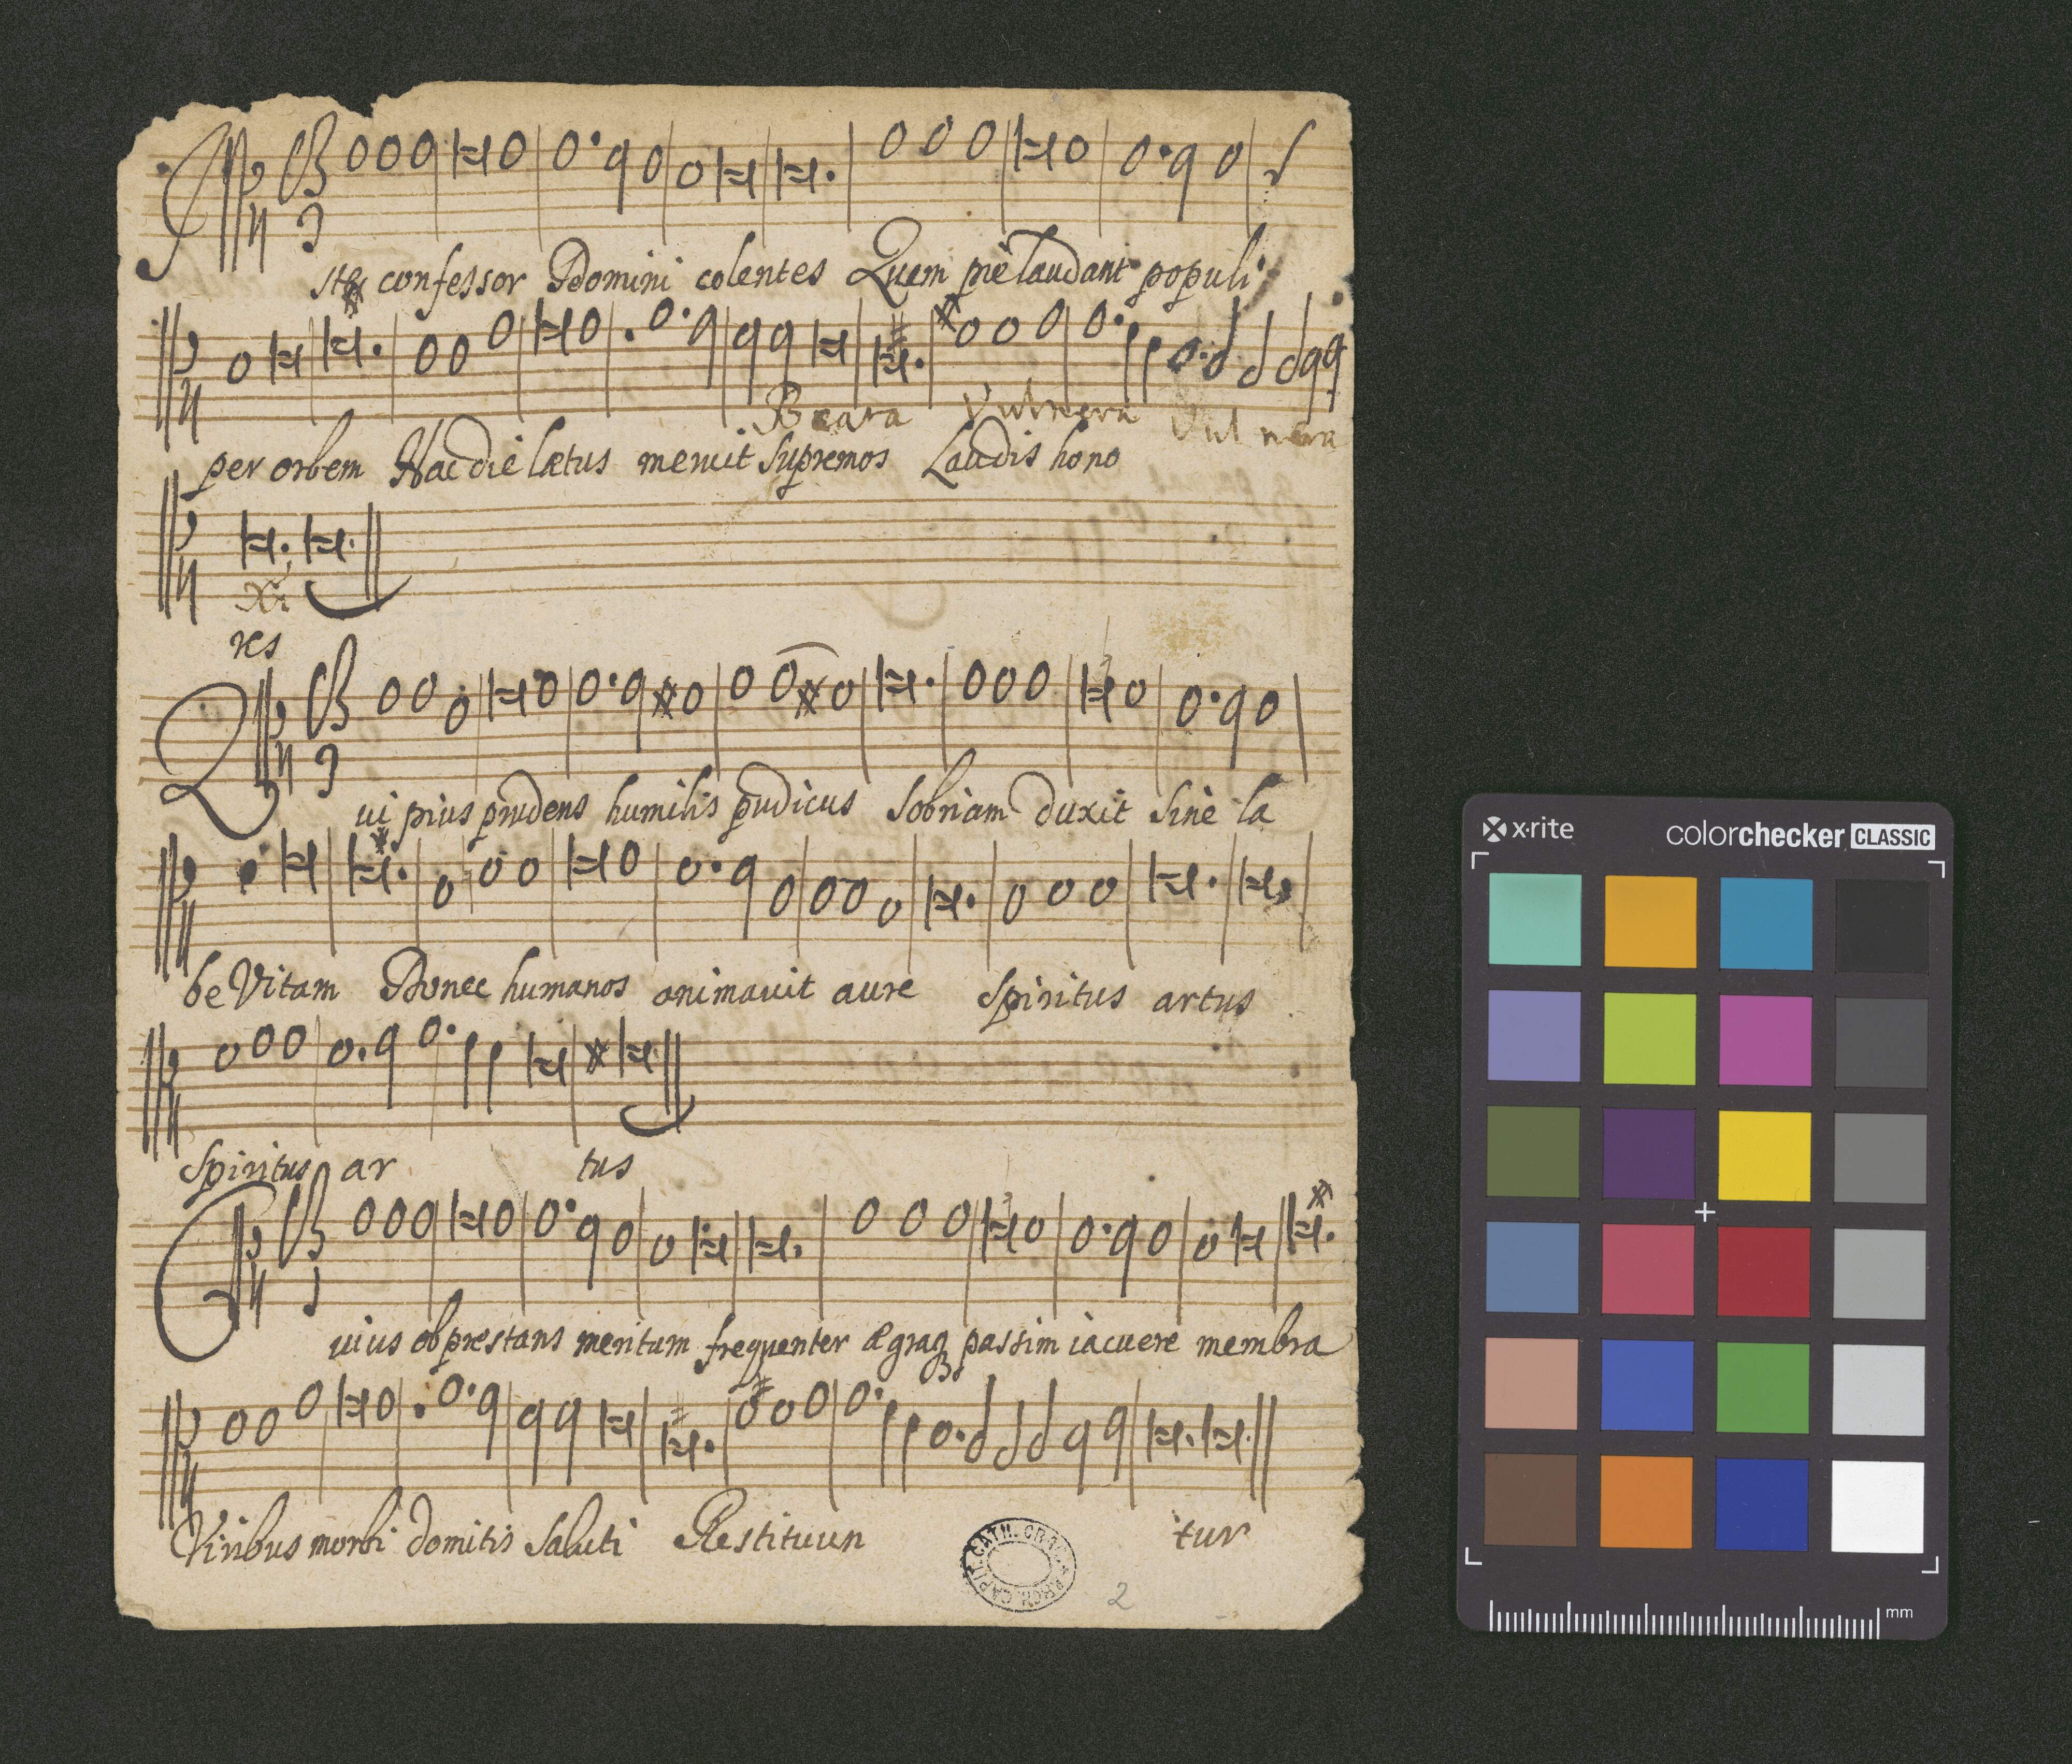 Iste confessor Domini colentes Quem piè laudant populi
Beata Vulnera Vulnera
per orbem Hac die lætus meruit supremos Laudis hono
res
Qui pius prudens humilis pudicus Sobriam duxit sine la
be Vitam Donec humanos animauit aure Spiritus artus
Spiritus ar tus
Cuius ob prestans meritum frequenter ægraq passim iacuere membra
Viribus morbi domitis Saluti Restituun tur
CAPIT. CATH.
2
x·rite colorchecker CLASSIC
mm